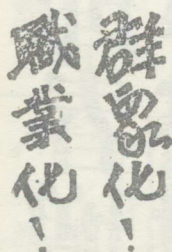 群眾化!
職業化!